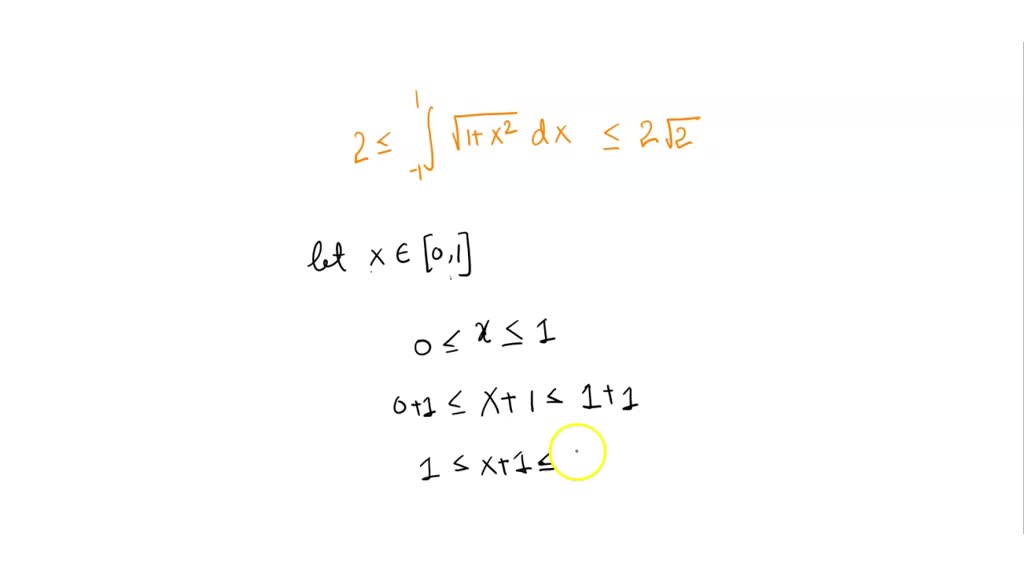 2 ≤ ∫₋₁¹ √(1+x²) dx ≤ 2√2
let x ∈ [0,1]
0 ≤ x ≤ 1
0+1 ≤ x+1 ≤ 1+1
1 ≤ x+1 ≤